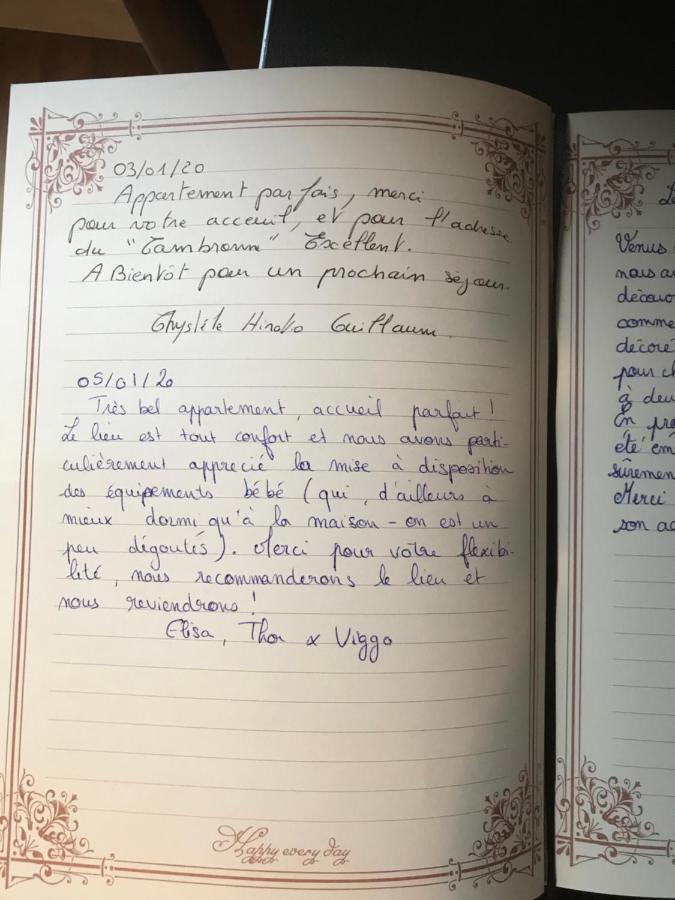 03/01/20
Appartement parfais, merci
pour votre acceuil, et pour l'adresse
du "Cambronne" Excellent.
A Bientôt pour un prochain séjour.
Hinoko Guillaum.
05/01/20
Très bel appartement, accueil parfait !
Le lieu est tout confort et nous avons parti-
culièrement apprecié la mise à disposition
des équipements bébé (qui, d'ailleurs à
mieux dormi qu'à la maison - on est un
peu dégoutés). Merci pour votre flexibi-
lité, nous recommanderons le lieu et
nous reviendrons !
Elisa, Thor & Viggo
Happy every day
Venus
nous a
décou
comme
décoré
pour c
à deu
En pro
été em
sûremen
Merci
son ac